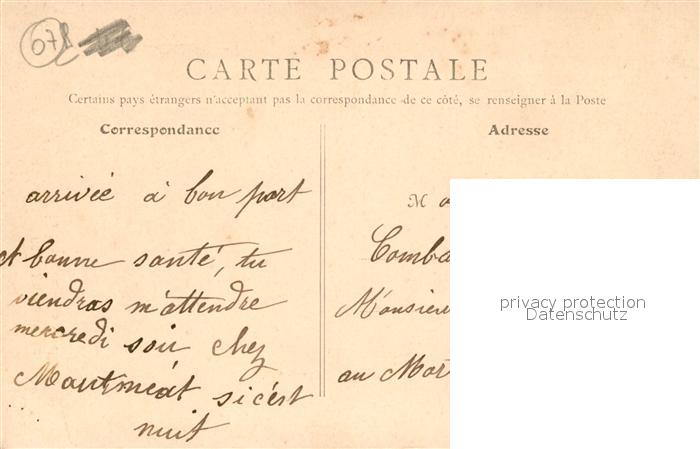 078
CARTE POSTALE
Certains pays étrangers n'acceptant pas la correspondance de ce côté, se renseigner à la Poste
Correspondance
arrivée à bon port
et bonne santé, tu
viendras m'attendre
mercredi soir chez
si c'est
nuit
Adresse
M
Comba
Monsieu
au Mor
privacy protection
Datenschutz